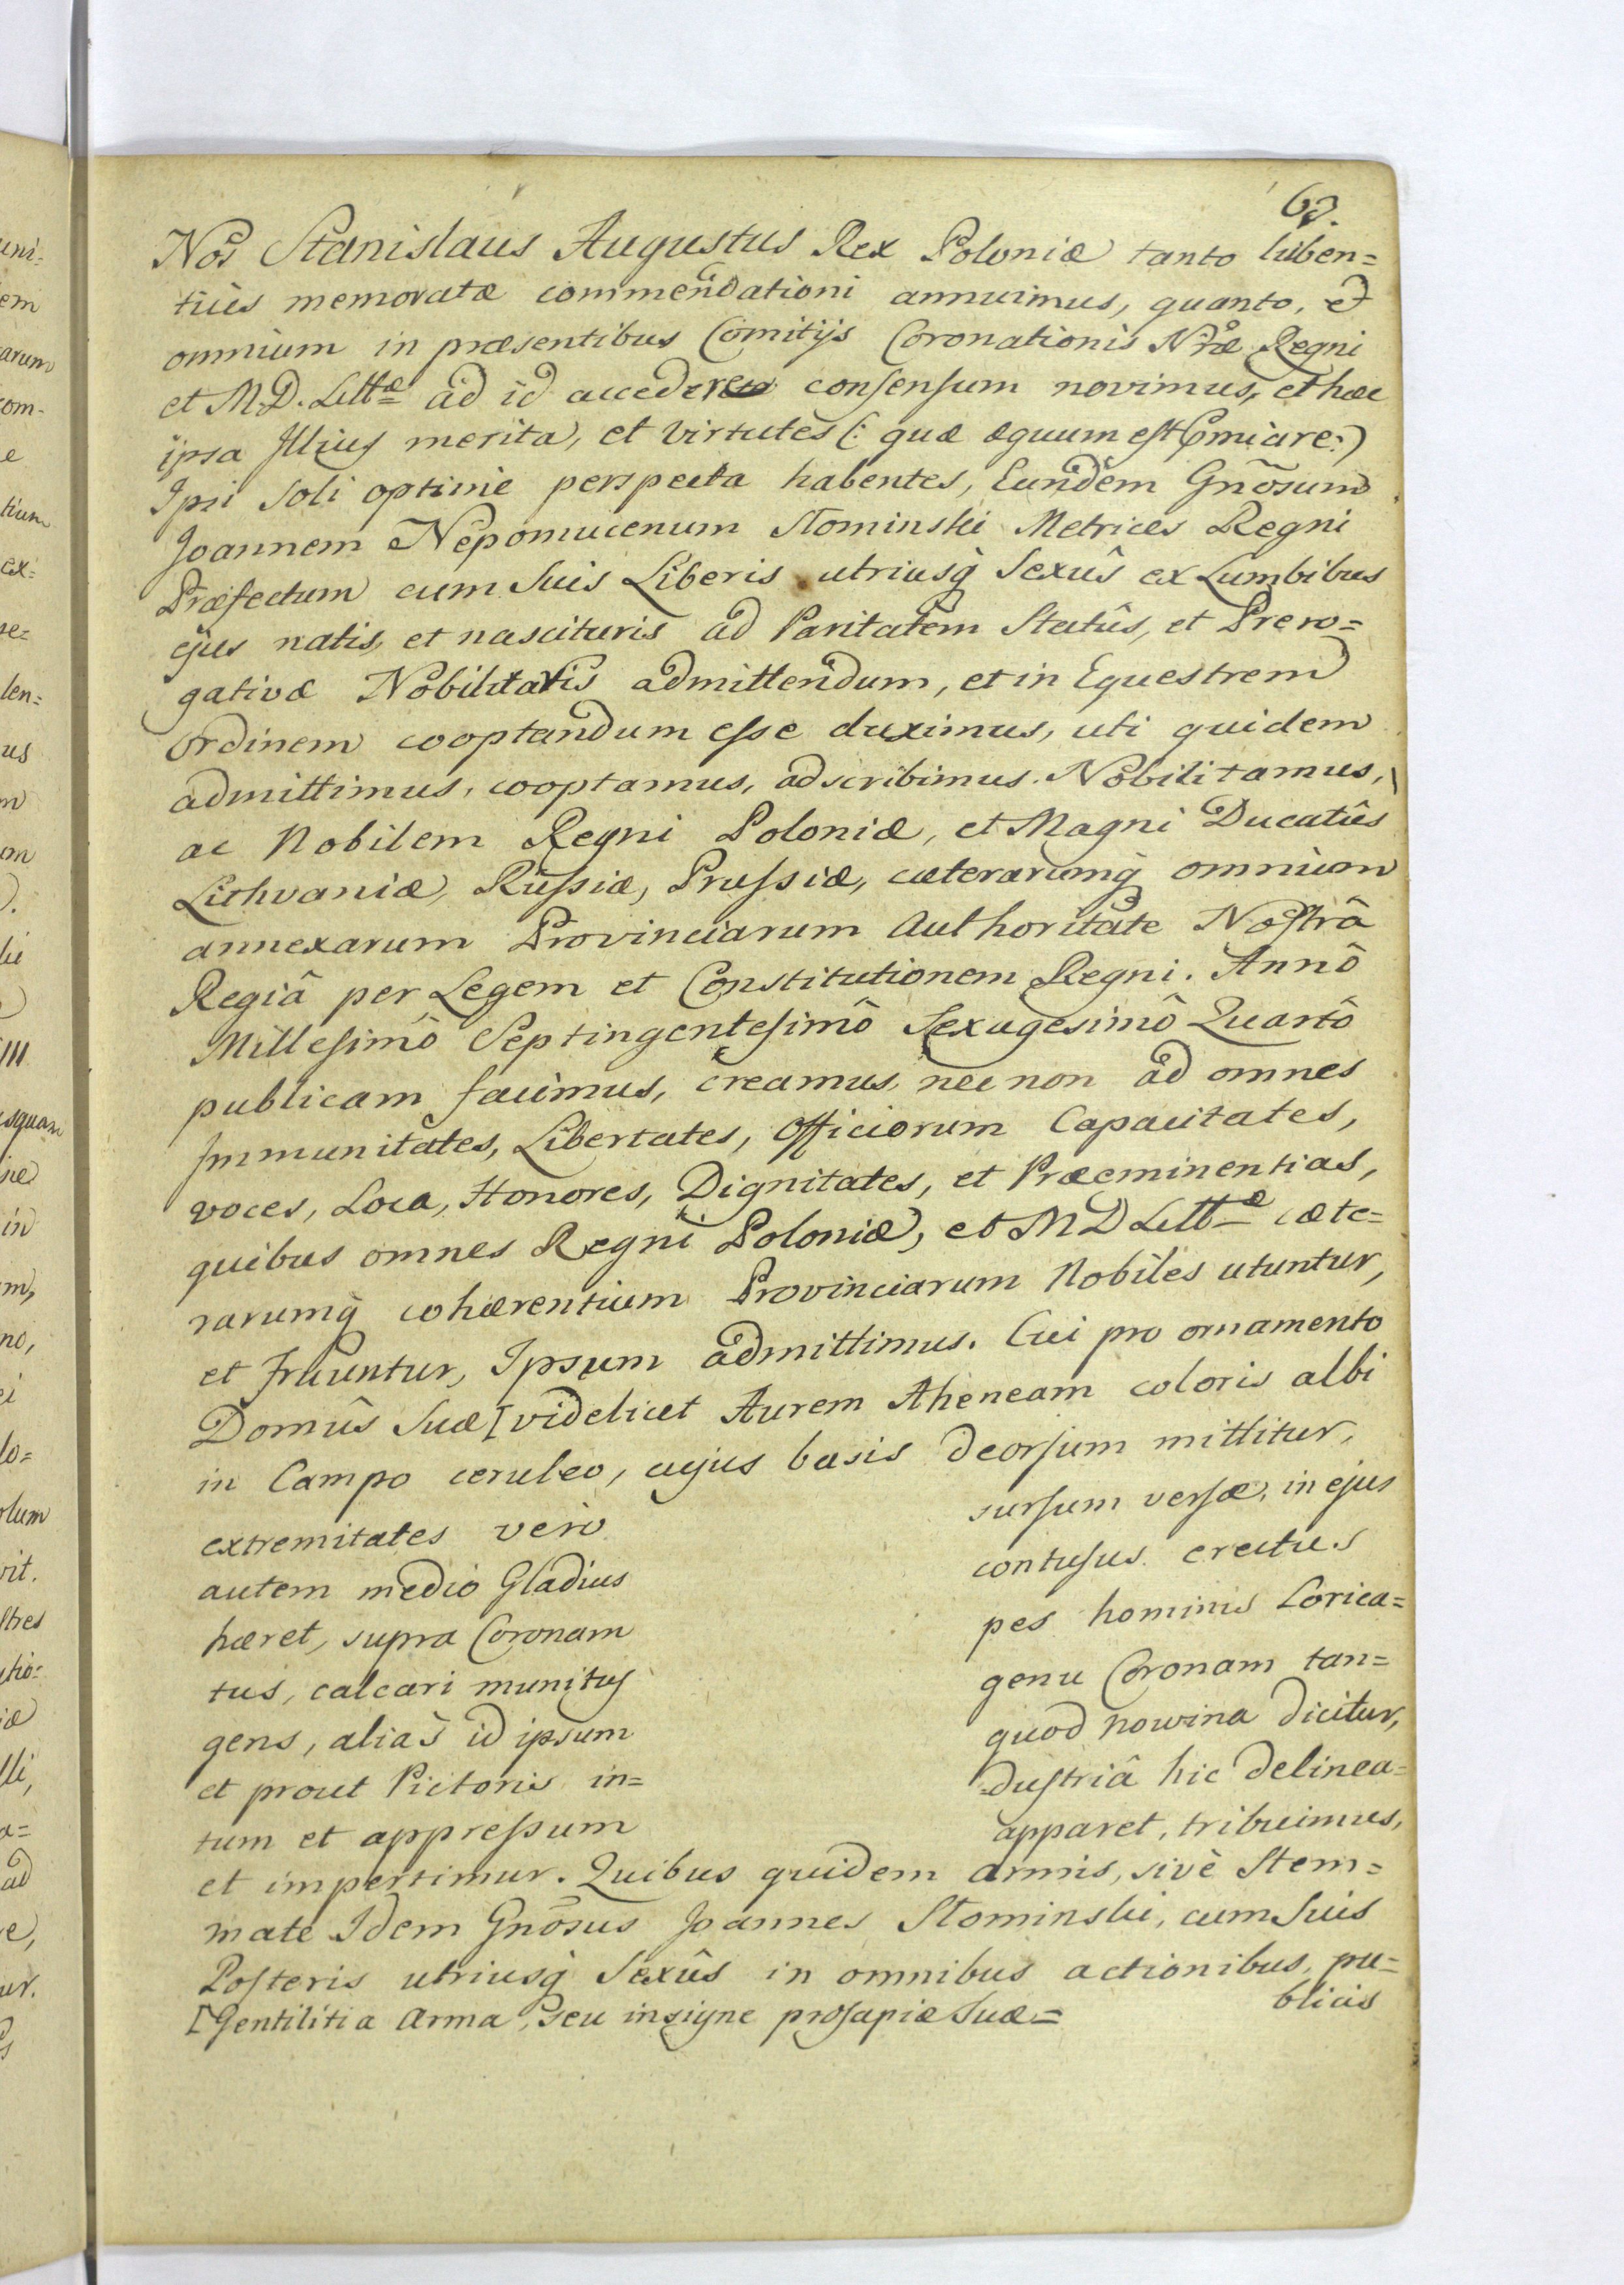 63.
Nos Stanislaus Augustus Rex Poloniæ tanto luben=
tiùs memoratæ commendationi annuimus, quanto, et
omnium in præsentibus Comitijs Coronationis Nræ Regni
et M.D. Littæ ad id accedere consensum novimus, et hæc
ipsa Illius merita, et virtutes (: quæ æquum est :)
Ipsi soli optimè perspecta habentes, Eundem Gnõsum
Joannem Nepomucenum Słominski Metrices Regni
Præfectum cum suis Liberis utriusq̀ Sexûs ex Lumbibus
ejus natis, et nascituris ad Paritatem Statûs, et Prero=
gativæ Nobilitatis admittendum, et in Equestrem
Ordinem cooptandum esse duximus, uti quidem
admittimus, cooptamus, adscribimus. Nobilitamus,
ac Nobilem Regni Poloniæ, et Magni Ducatûs
Lithvaniæ, Russiæ, Prussiæ, cæterarumq̀ omnium
annexarum Provinciarum Authoritate Nostrâ
Regiâ per Legem et Constitutionem Regni. Annô
Millesimô Septingentesimô Sexagesimô Quartô
publicam facimus, creamus, nec non ad omnes
Immunitates, Libertates, Officiorum Capacitates,
voces, Loca, Honores, Dignitates, et Præeminentias,
quibus omnes Regni Poloniæ, et M D Littæ cæte=
rarumq̀ cohærentium Provinciarum Nobiles utuntur,
et fruuntur, Ipsum admittimus. Cui pro ornamento
Domûs Suæ [ videlicet Aurem Aheneam coloris albi
in Campo ceruleo, cujus basis deorsum mittitur,
extremitates verò sursum versæ, in ejus
autem medio Gladius contusus erectus
hæret, supra Coronam pes hominis Lorica=
tus, calcari munitus genu Coronam tan=
gens, aliàs id ipsum quod nowina dicitur,
et prout Pictoris in= dustriâ hic delinea=
tum et appressum apparet, tribuimus,
et impertimur. Quibus quidem armis, sivè Stem=
mate Idem Gnõsus Joannes Słominski, cum suis
Posteris utriusq̀ Sexûs in omnibus actionibus, pu=
blicis
[ Gentilitia Arma, seu insigne prosapiæ Suæ =